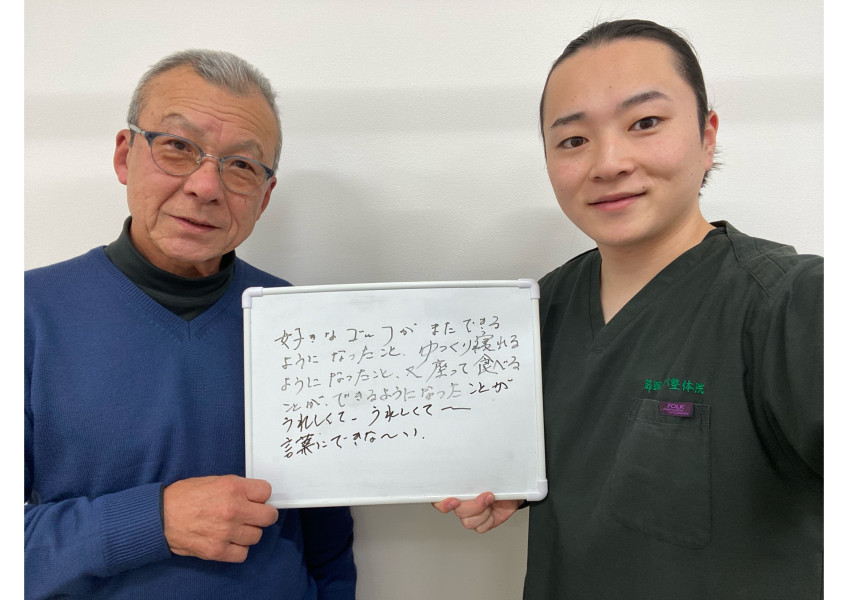 好きなゴルフがまたできる
ようになったこと、ゆっくり寝れる
ようになったこと、座って食べる
ことが、できるようになったことが
うれしくて〜うれしくて〜
言葉にできな〜い.
整体院
FOLK